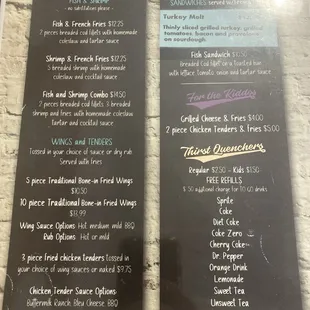 FISH & SHRIMP
- no substitutions please -
Fish & French Fries $12.25
2 pieces breaded cod filets with homemade
coleslaw and tartar sauce
Shrimp & French Fries $12.25
5 breaded shrimp with homemade
coleslaw and cocktail sauce
Fish and Shrimp Combo $14.50
2 pieces breaded cod filets, 3 breaded
shrimp and fries with homemade coleslaw,
tartar and cocktail sauce
WINGS and TENDERS
Tossed in your choice of sauce or dry rub
Served with fries
5 piece Traditional Bone-in Fried Wings
$10.50
10 piece Traditional Bone-in Fried Wings
$13.99
Wing Sauce Options: Hot medium mild BBQ
Rub Options: Hot or mild
3 piece fried chicken tenders tossed in
your choice of wing sauces or naked $9.75
Chicken Tender Sauce Options:
Buttermilk Ranch Bleu Cheese BBQ
SANDWICHES served with
Turkey Melt
Thinly sliced grilled turkey, grilled
tomatoes, bacon and provolone
on sourdough.
Fish Sandwich
breaded cod filet on a toasted bun
with lettuce tomato, onion and tartar sauce
For the Kiddos
Grilled Cheese & Fries $4.00
2 piece Chicken Tenders & fries $5.00
Thirst Quenchers
Regular $2.50 - Kids $1.50
FREE REFILLS
additional charge for TO GO drinks
Sprite
Coke
Diet Coke
Coke Zero
Cherry Coke
Dr. Pepper
Orange Drink
Lemonade
Sweet Tea
Unsweet Tea